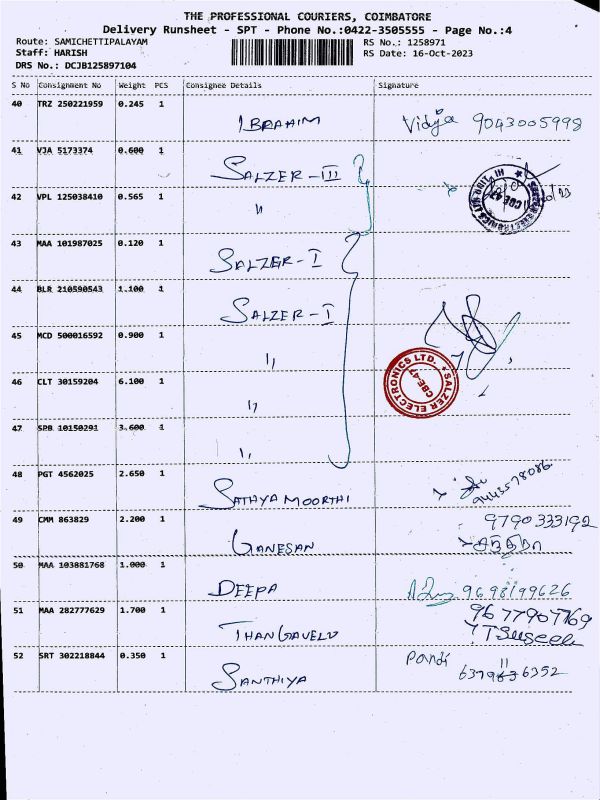 THE PROFESSIONAL COURIERS, COIMBATORE
Delivery Runsheet - SPT - Phone No.:0422-3505555 - Page No.:4
Route: SAMICHETTIPALAYAM
RS No.: 1258971
Staff: HARISH
RS Date: 16-Oct-2023
DRS No.: DCJB125897104
S No Consignment No Weight PCS Consignee Details Signature
40 TRZ 250221959 0.245 1 IBRAHIM Vidya 9043005998
41 VJA 5173374 0.600 1 SALZER-III
42 VPL 125038410 0.565 1 "
43 MAA 101987025 0.120 1 SALZER-I
44 BLR 210590543 1.100 1 SALZER-I
45 MCD 500016592 0.900 1 "
SALZER ELECTRONICS LTD. CBE-47
46 CLT 30159204 6.100 1 "
47 SPB 10150291 3.600 1 "
48 PGT 4562025 2.650 1 SATHYA MOORTHI 9443578086
49 CMM 863829 2.200 1 GANESAN 9790333192
50 MAA 103881768 1.000 1 DEEPA 9698199626
51 MAA 282777629 1.700 1 THANGAVELU 9677907769
T Suseela
52 SRT 302218844 0.350 1 SANTHIYA Pandi